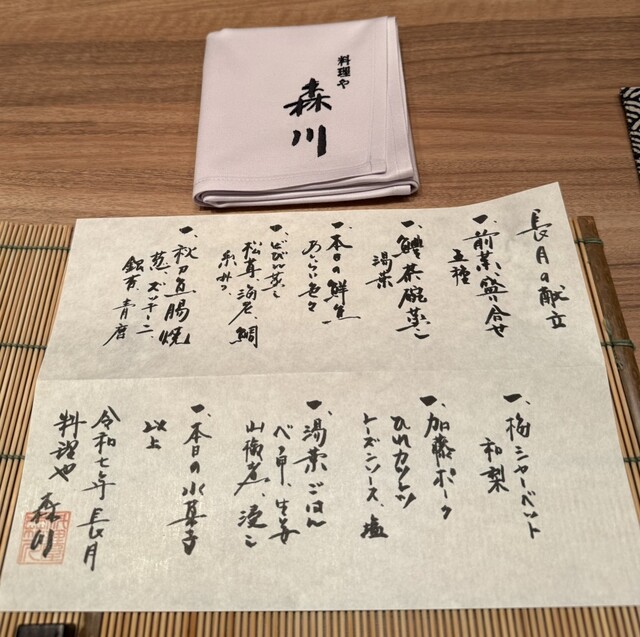 料理や
森川
長月の献立
一、前菜盛り合せ
五種
一、鱧茶碗蒸し
湯葉
一、本日の鮮魚
あしらい色々
一、どびん蒸し
松茸、海老、鯛
糸みつ
一、秋刀魚腸焼
蒸しズッキーニ、
銀杏、青唐
一、梅シャーベット
和梨
一、加藤ポーク
ひれカツレツ
トーズンソース、塩
一、湯葉ごはん
べっ甲、生姜
山椒煮、漬し
一、本日の水菓子
以上
令和七年 長月
料理や 森川